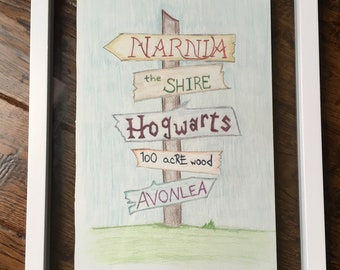 NARNIA
the SHIRE
Hogwarts
100 acRE wood
AVONLEA